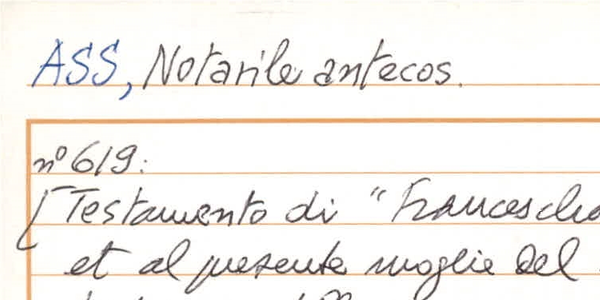 ASS, Notarile antecos.
nº 619:
[Testamento di "Francescha
et al presente moglie del